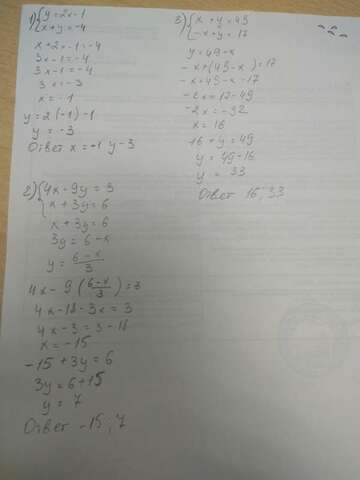 1) { y = 2x - 1
x + y = -4
x + 2x - 1 = -4
3x - 1 = -4
3x - 1 = -4
3x = -3
x = -1
y = 2(-1) - 1
y = -3
Ответ x = -1 y - 3
2) { 4x - 9y = 3
x + 3y = 6
x + 3y = 6
3y = 6 - x
y = (6 - x)/3
4x - 9 ((6 - x)/3) = 3
4x - 18 - 3x = 3
4x - 3 = 3 - 18
x = -15
-15 + 3y = 6
3y = 6 + 15
y = 7
Ответ -15, 7
3) { x + y = 49
-x + y = 17
y = 49 - x
-x + (49 - x) = 17
-x = 49 - x - 17
-2x = 17 - 49
-2x = -32
x = 16
16 + y = 49
y = 49 - 16
y = 33
Ответ 16, 33